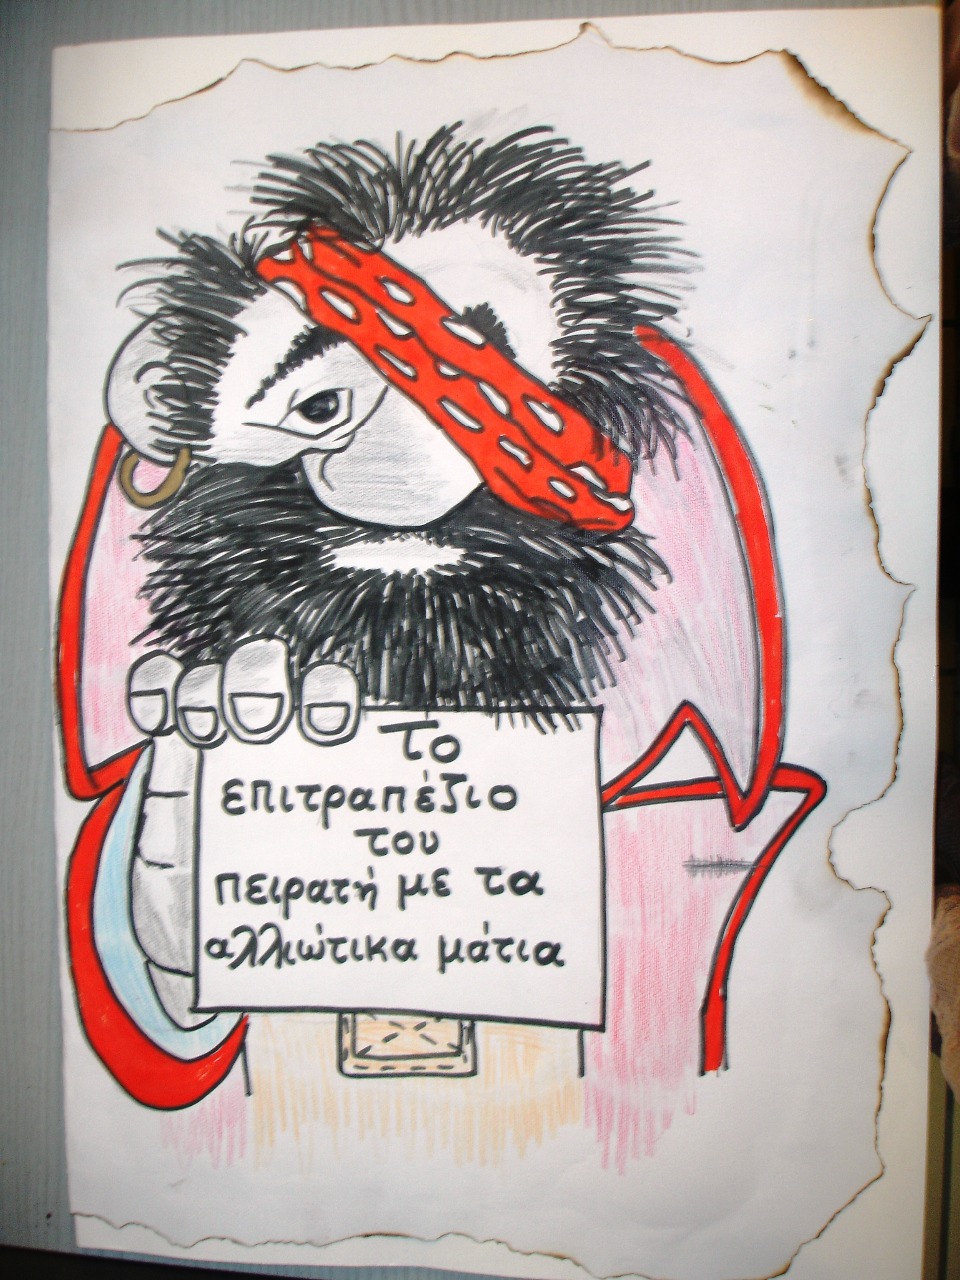 το
επιτραπέζιο
του
πειρατή με τα
αλλιώτικα μάτια